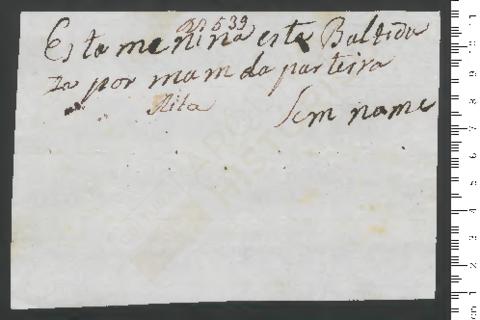 Nº 539
Esta menina esta Baltida
za por mam da parteira
Rita Sem name